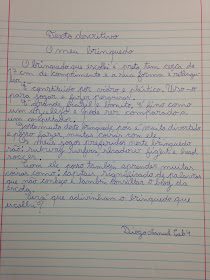 Texto descritivo
O meu brinquedo
O brinquedo que escolhi é preto tem cerca de
17 cm de comprimento e a sua forma é retangu-
lar.
É constituído por vidro e plástico. Uso-o
para jogar e fazer pesquisas.
É grande, frágil e bonito. É fino como
um e pode ser comparado a
um computador.
Gosto muito deste brinquedo, pois é muito divertido
e posso fazer muitas coisas com ele.
Os meus jogos preferidos neste brinquedo
são: subway surfers, head
soccer.
Com ele posso também aprender muitas
coisas como: capitais, significados de palavras
que não conheço e também consultar o blog da
escola.
Será que adivinham o brinquedo que
escolhi?
Diogo Daniel